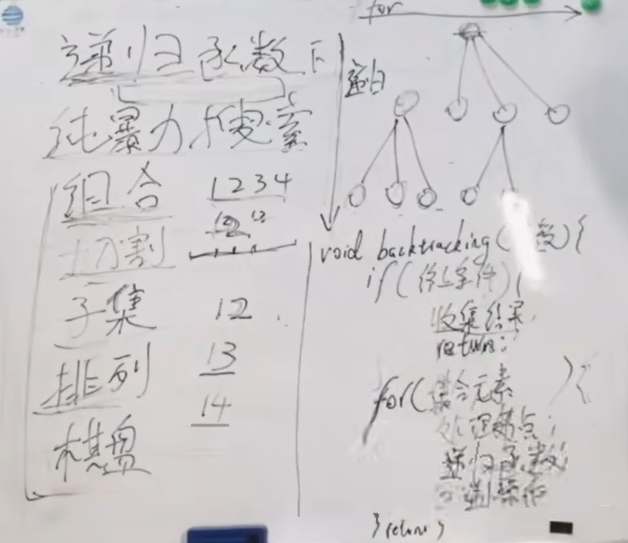 递归函数下
纯暴力搜索
组合 1234
切割 12 13
子集 12
排列 13
棋盘 14
for
递归
void backtracking(参数){
if(终止条件){
收集结果
return;
for(集合元素){
处理节点;
递归函数;
回溯操作
}return;